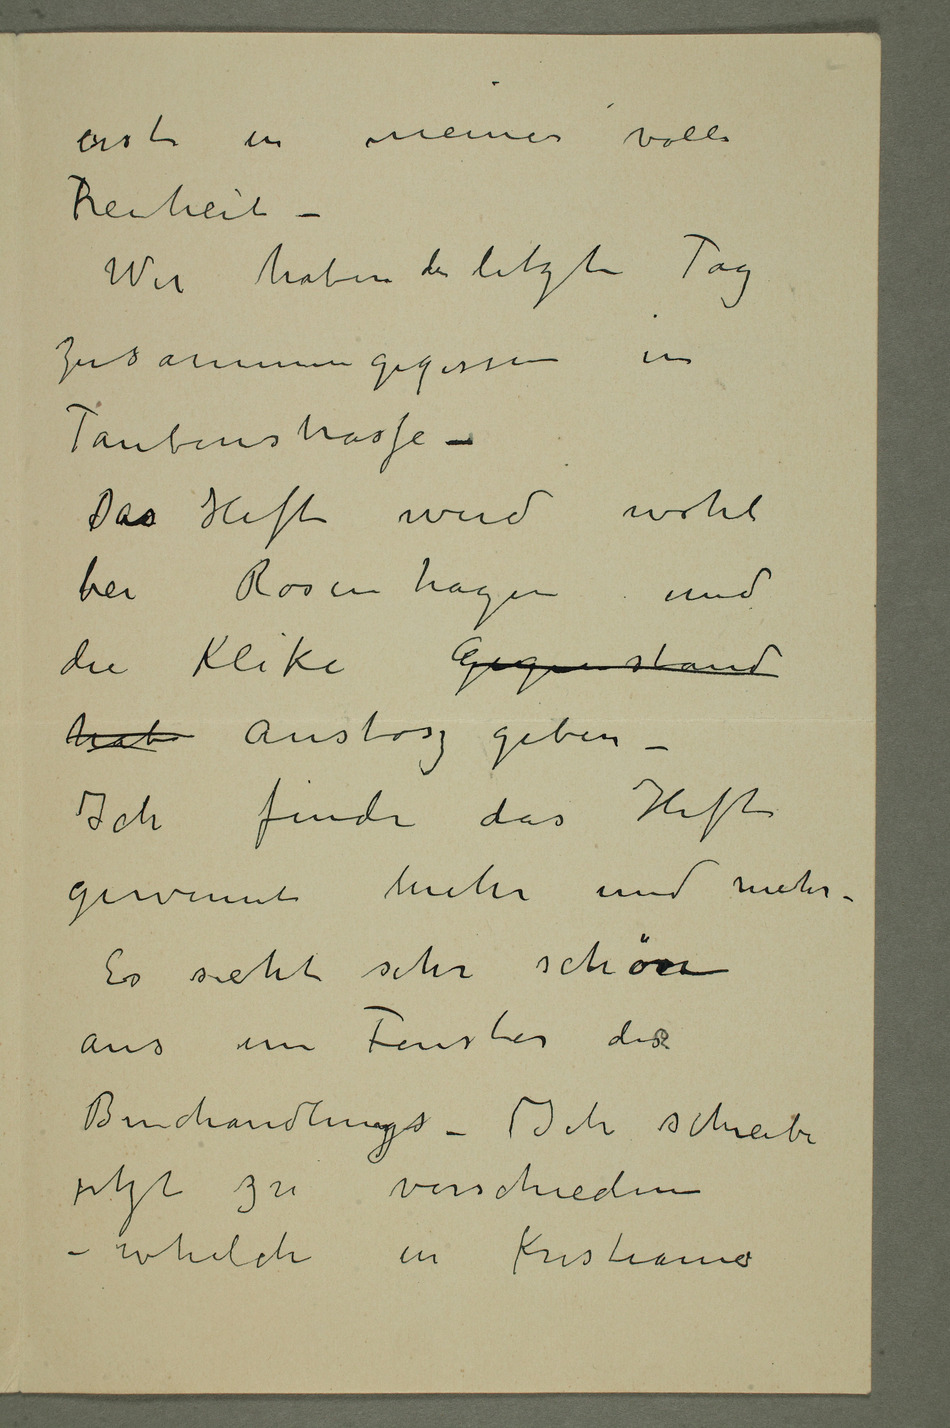 erst in meiner volle
Freiheit –
Wir haben de letzte Tag
zusammengegessen in
Taubenstrasse –
Das Heft wird wohl
bei Rosenhagen und
die Klike Gegenstand
hab anstosz geben –
Ich finde das Heft
gewinnt mehr und mehr –
Es sieht sehr schön
aus im Fenster des
Buchandlungs – Ich schreibe
jetzt zu verschiedene
– whelche in Kristiania